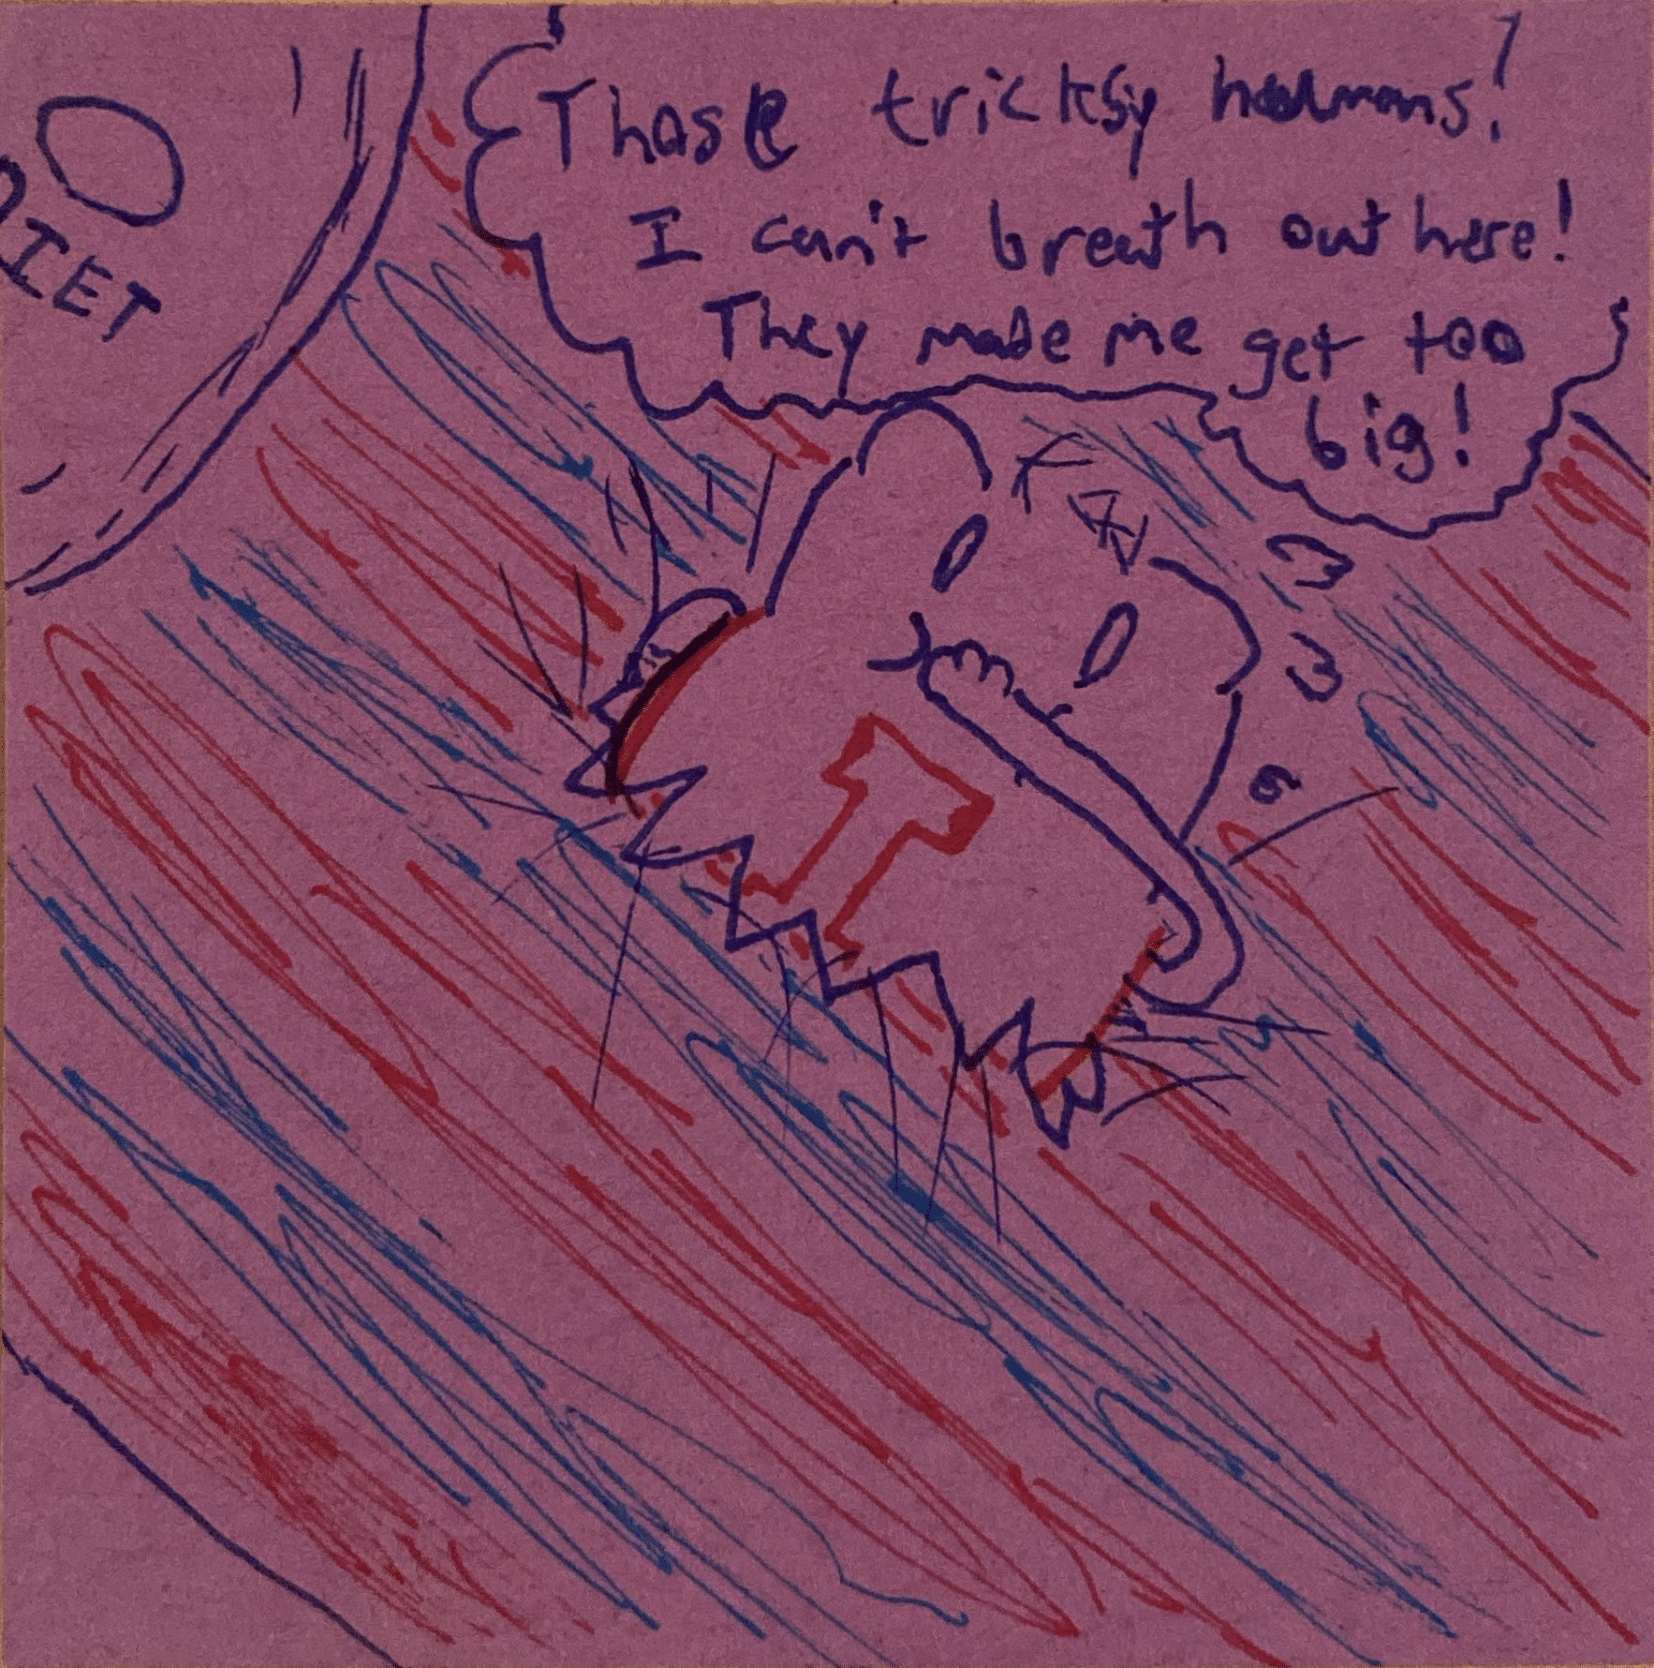 Those tricksy hoomans!
I can't breath out here!
They made me get too
big!
DIET
T